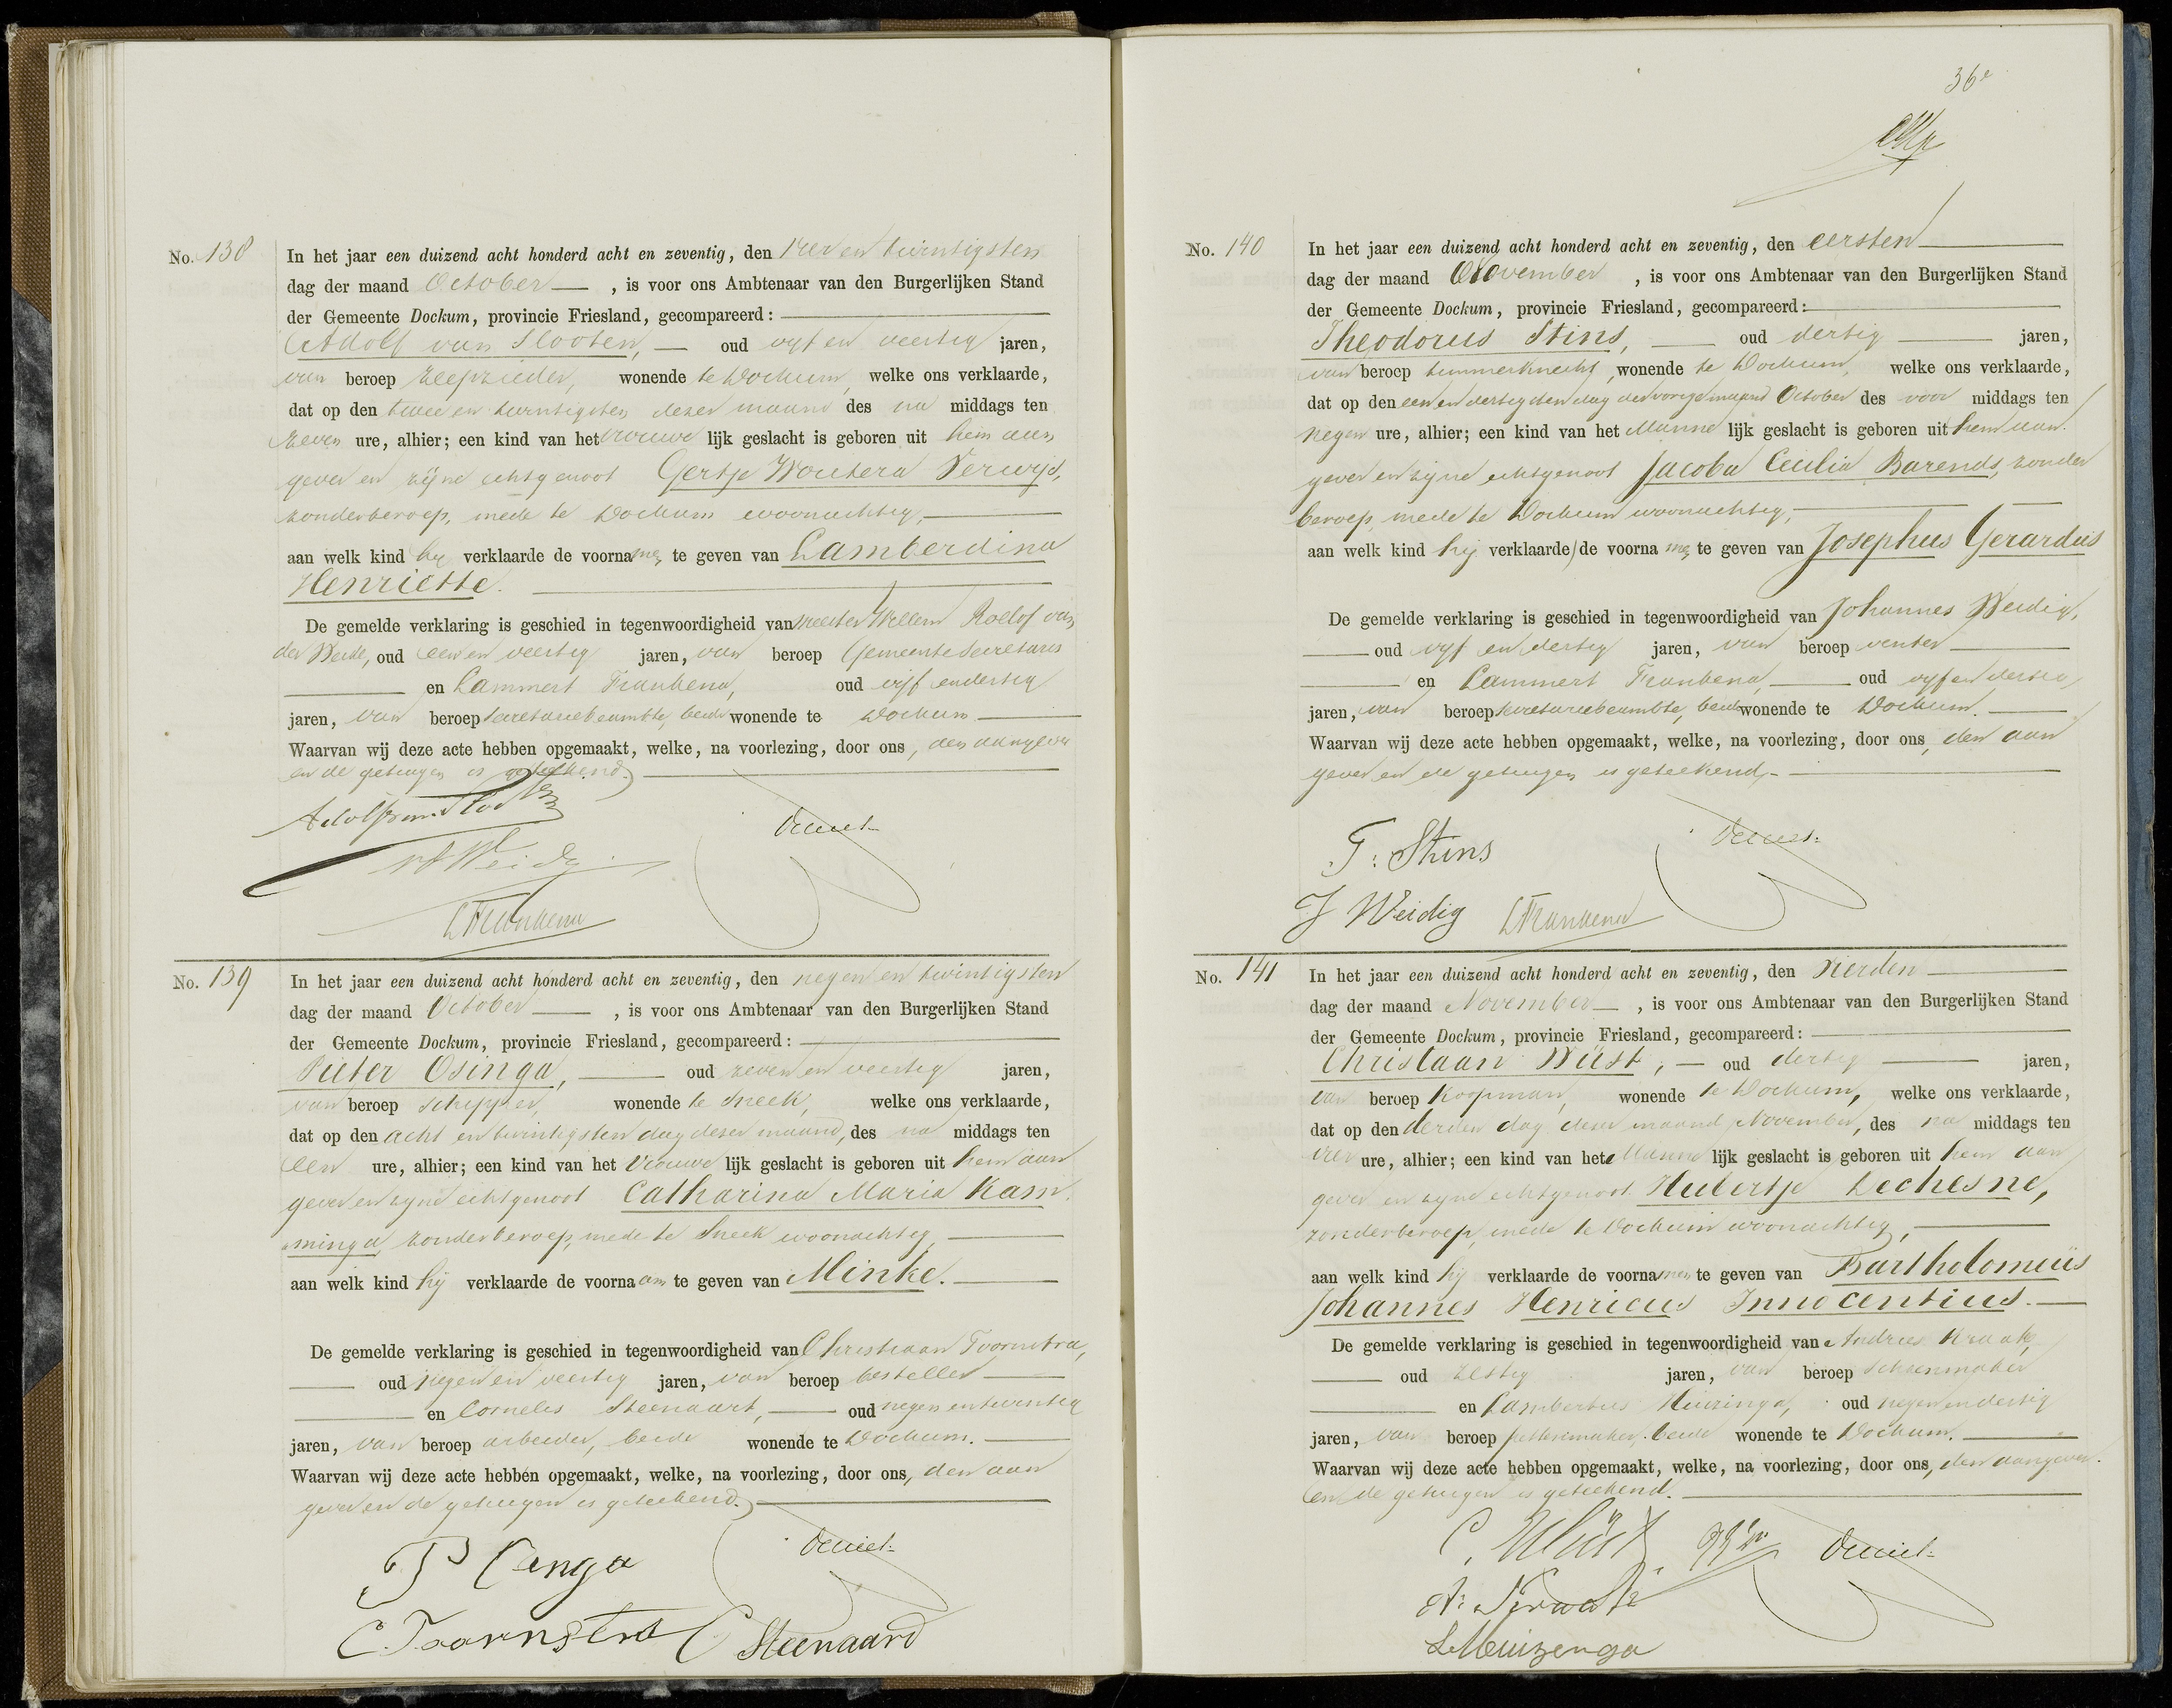 No. 138
In het jaar een duizend acht honderd acht en zeventig, den vier en twintigsten
dag der maand October , is voor ons Ambtenaar van den Burgerlijken Stand
der Gemeente Dockum, provincie Friesland, gecompareerd:
Adolf van Slooten, oud vyf en veertig jaren,
van beroep zeepzieder, wonende te Dockum, welke ons verklaarde,
dat op den twee en twintigsten dezer maand des na middags ten
zeven ure, alhier; een kind van het vrouwe lijk geslacht is geboren uit hem aan
gever en zijne echtgenoot Gertje Woutera Verwijs,
zonder beroep, mede te Dockum woonachtig,
aan welk kind hy verklaarde de voornamen te geven van Lamberdina
Henriette.
De gemelde verklaring is geschied in tegenwoordigheid van Meester Willem Roelof van
der Weide, oud een en veertig jaren, van beroep Gemeente Secretaris
en Lammert Frankena, oud vijf en dertig
jaren, van beroep secretariebeambte, beide wonende te Dockum
Waarvan wij deze acte hebben opgemaakt, welke, na voorlezing, door ons, den aangever
en de getuigen is geteekend.
Adolf van Slooten
L Frankena
No. 139
In het jaar een duizend acht honderd acht en zeventig, den negen en twintigsten
dag der maand October , is voor ons Ambtenaar van den Burgerlijken Stand
der Gemeente Dockum, provincie Friesland, gecompareerd:
Pieter Osinga, oud zeven en veertig jaren,
van beroep schipper, wonende te Sneek, welke ons verklaarde,
dat op den acht en twintigsten dag dezer maand, des na middags ten
een ure, alhier; een kind van het Vrouwe lijk geslacht is geboren uit hem aan
gever en zyne echtgenoot Catharina Maria Kam
minga, zonder beroep, mede te Sneek woonachtig,
aan welk kind hij verklaarde de voornaam te geven van Minke.
De gemelde verklaring is geschied in tegenwoordigheid van Christiaan Toornstra,
oud negen en veertig jaren, van beroep besteller
en Cornelis Steenaart, oud negen en twintig
jaren, van beroep arbeider, beide wonende te Dockum.
Waarvan wij deze acte hebben opgemaakt, welke, na voorlezing, door ons, den aan
gever en de getuigen is geteekend.
C. Toornstra C Steenaard
36e
No. 140
In het jaar een duizend acht honderd acht en zeventig, den eersten
dag der maand November , is voor ons Ambtenaar van den Burgerlijken Stand
der Gemeente Dockum, provincie Friesland, gecompareerd:
Theodorus Stins, oud dertig jaren,
van beroep timmerknecht, wonende te Dockum, welke ons verklaarde,
dat op den een en dertigsten dag der vorige maand October des voor middags ten
negen ure, alhier; een kind van het Manne lijk geslacht is geboren uit hem aan
gever en zijne echtgenoot Jacoba Cecilia Barends, zonder
beroep, mede te Dockum woonachtig,
aan welk kind hij verklaarde de voornamen te geven van Josephus Gerardus
De gemelde verklaring is geschied in tegenwoordigheid van Johannes Weidig,
oud vyf en dertig jaren, van beroep venter
en Lammert Frankena, oud vyf en dertig
jaren, van beroep secretariebeambte, beide wonende te Dockum.
Waarvan wij deze acte hebben opgemaakt, welke, na voorlezing, door ons, den aan
gever en de getuigen is geteekend,
T. Stins
J Weidig L Frankena
No. 141
In het jaar een duizend acht honderd acht en zeventig, den Vierden
dag der maand November , is voor ons Ambtenaar van den Burgerlijken Stand
der Gemeente Dockum, provincie Friesland, gecompareerd:
Christiaan Wüst, oud dertig jaren,
van beroep Koopman, wonende te Dockum, welke ons verklaarde,
dat op den derden dag dezer maand November, des na middags ten
vier ure, alhier; een kind van het Manne lijk geslacht is geboren uit hem aan
gever en zyne echtgenoot Hubertje Dechesne,
zonder beroep, mede te Dockum woonachtig,
aan welk kind hij verklaarde de voornamen te geven van Bartholomeüs
Johannes Henricus Innocentius.
De gemelde verklaring is geschied in tegenwoordigheid van Andries Kraak,
oud zestig jaren, van beroep schoenmaker
en Lambertus Huizinga, oud negen en dertig
jaren, van beroep beide wonende te Dockum.
Waarvan wij deze acte hebben opgemaakt, welke, na voorlezing, door ons, den aangever
en de getuigen is geteekend.
C. Wüst